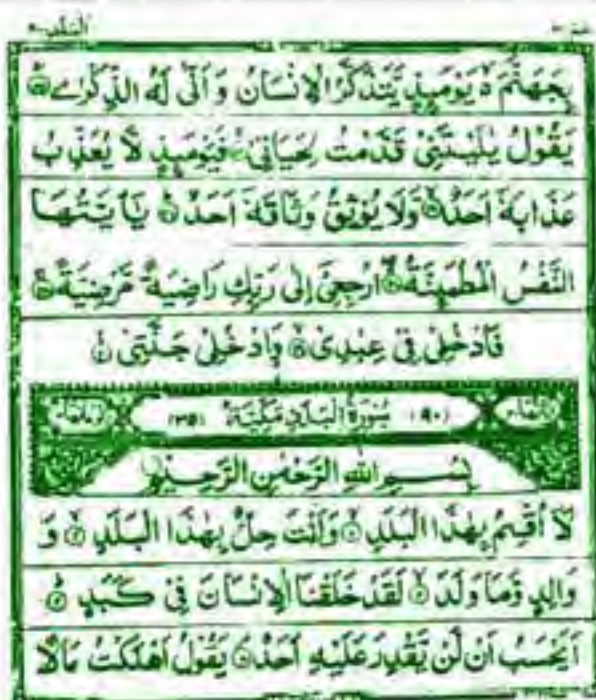 البلد ٩٠
عم ٣٠
بِجَهَنَّمَ ۙ يَوْمَئِذٍ يَّتَذَكَّرُ الْاِنْسَانُ وَ اَنّٰى لَهُ الذِّكْرٰى ۝
يَقُوْلُ يٰلَيْتَنِيْ قَدَّمْتُ لِحَيَاتِيْ ۝ فَيَوْمَئِذٍ لَّا يُعَذِّبُ
عَذَابَهٗٓ اَحَدٌ ۝ وَّلَا يُوْثِقُ وَثَاقَهٗٓ اَحَدٌ ۝ يٰٓاَيَّتُهَا
النَّفْسُ الْمُطْمَئِنَّةُ ۝ ارْجِعِيْٓ اِلٰى رَبِّكِ رَاضِيَةً مَّرْضِيَّةً ۝
فَادْخُلِيْ فِيْ عِبٰدِيْ ۝ وَادْخُلِيْ جَنَّتِيْ ۝
(٩٠) سُوْرَةُ الْبَلَدِ مَكِّيَّةٌ (٣٥)
بِسْمِ اللّٰهِ الرَّحْمٰنِ الرَّحِيْمِ
لَآ اُقْسِمُ بِهٰذَا الْبَلَدِ ۝ وَاَنْتَ حِلٌّۢ بِهٰذَا الْبَلَدِ ۝ وَ
وَالِدٍ وَّمَا وَلَدَ ۝ لَقَدْ خَلَقْنَا الْاِنْسَانَ فِيْ كَبَدٍ ۝
اَيَحْسَبُ اَنْ لَّنْ يَّقْدِرَ عَلَيْهِ اَحَدٌ ۝ يَقُوْلُ اَهْلَكْتُ مَالًا